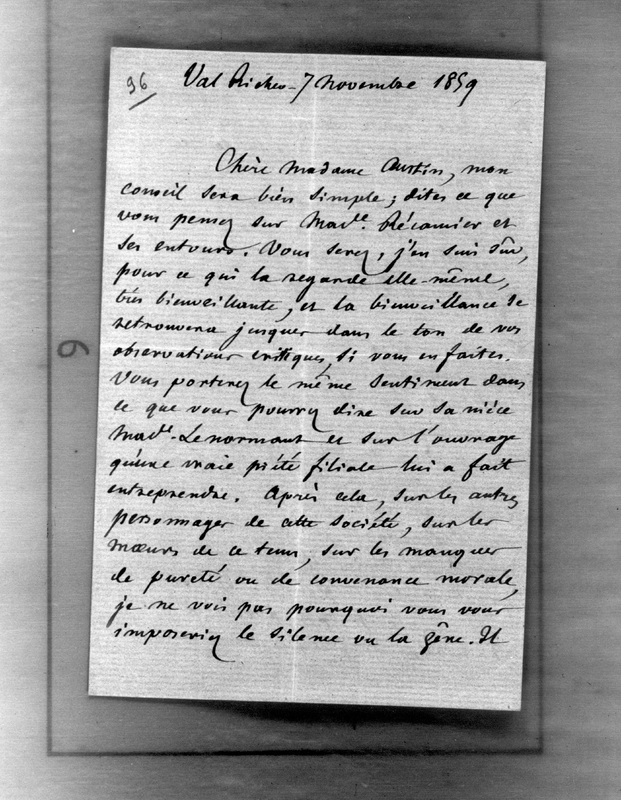 96
Val Richer - 7 novembre 1859
Chère Madame Austin, mon
conseil sera bien simple ; dites ce que
vous pensez sur Made. Récamier et
ses entours. Vous serez, j'en suis sûr,
pour ce qui la regarde elle-même,
très bienveillante, et la bienveillance se
retrouvera jusques dans le ton de vos
observations critiques, si vous en faites.
Vous porterez le même sentiment dans
ce que vous pourrez dire sur sa nièce
Made. Lenormant et sur l'ouvrage
qu'une vraie piété filiale lui a fait
entreprendre. Après cela, sur les autres
personnages de cette société, sur les
mœurs de ce tems, sur les manques
de pureté ou de convenance morale,
je ne vois pas pourquoi vous vous
imposeriez le silence ou la gêne. Il
6